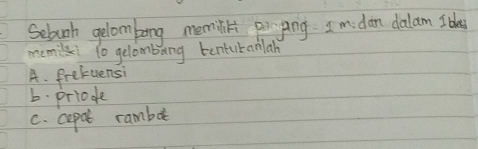 Sebuah gelombang memiliki panjang 1 m. dan dalam 1
memiliki 10 gelombang tentukanlah
A. frekuensi
b. priode
c. cepat rambat